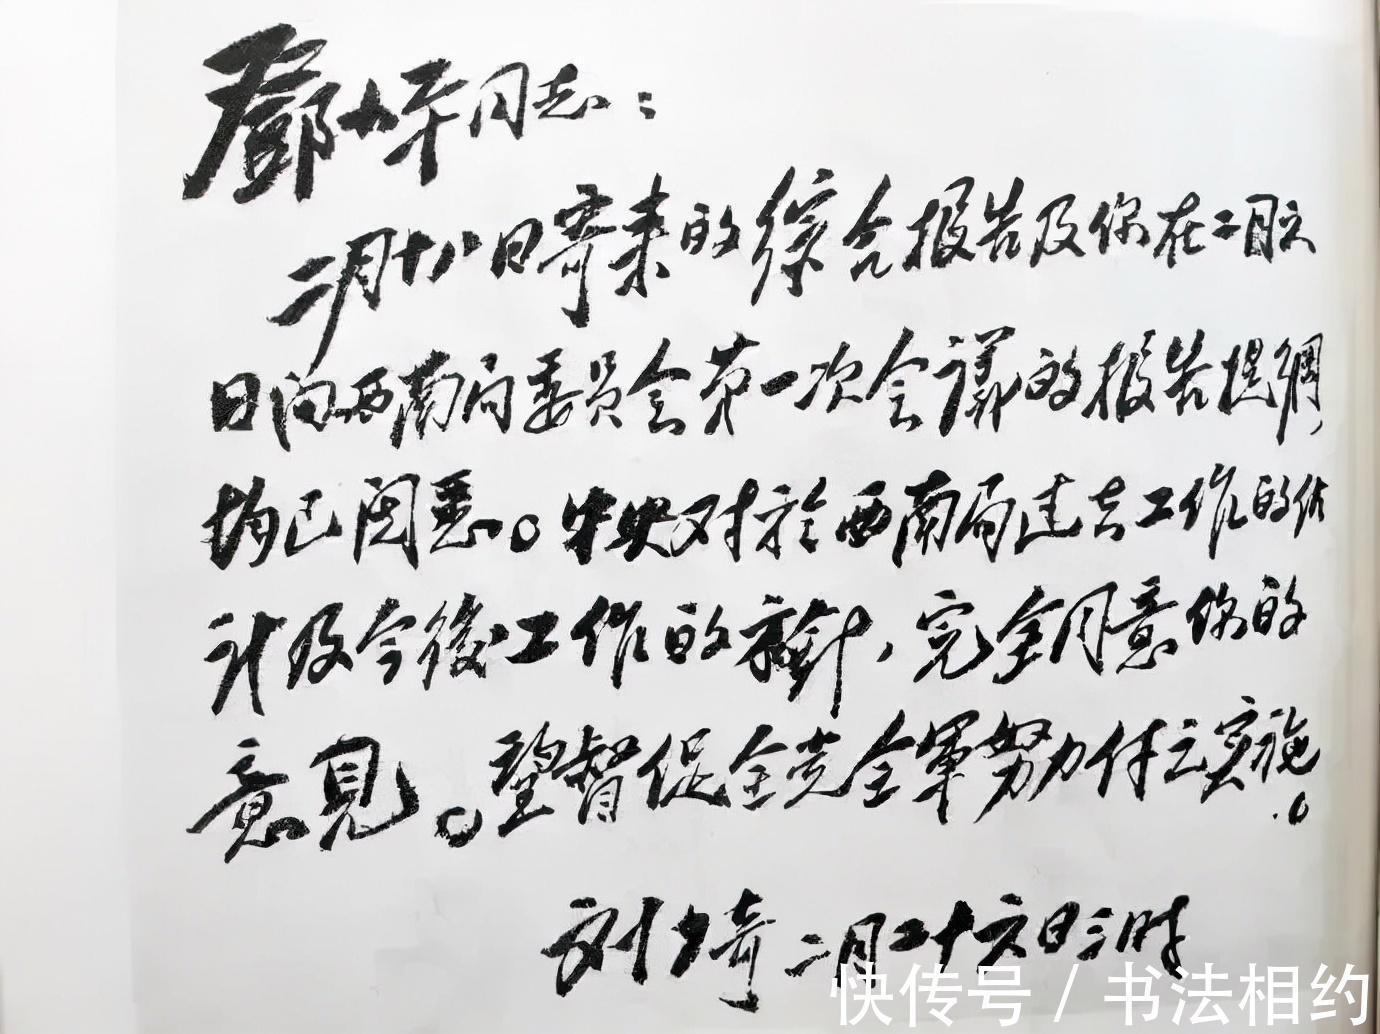 鄧小平同志：
二月十八日寄来的綜合报告及你在二月六
日向西南局委員会第一次会議的报告提綱
均已阅悉。中央对於西南局过去工作的估
计及今後工作的方針，完全同意你的
意見。望督促全党全軍努力付之实施。
刘少奇二月二十六日三时
快传号 / 书法相约